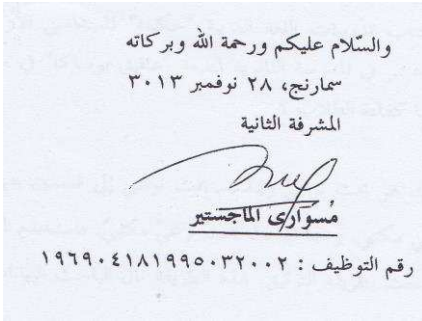 والسّلام عليكم ورحمة الله وبركاته
سمارنج، ٢٨ نوفمبر ٣٠١٣
المشرفة الثانية
مُسوَارى الماجستير
رقم التوظيف : ١٩٦٩٠٤١٨١٩٩٥٠٣٢٠٠٢